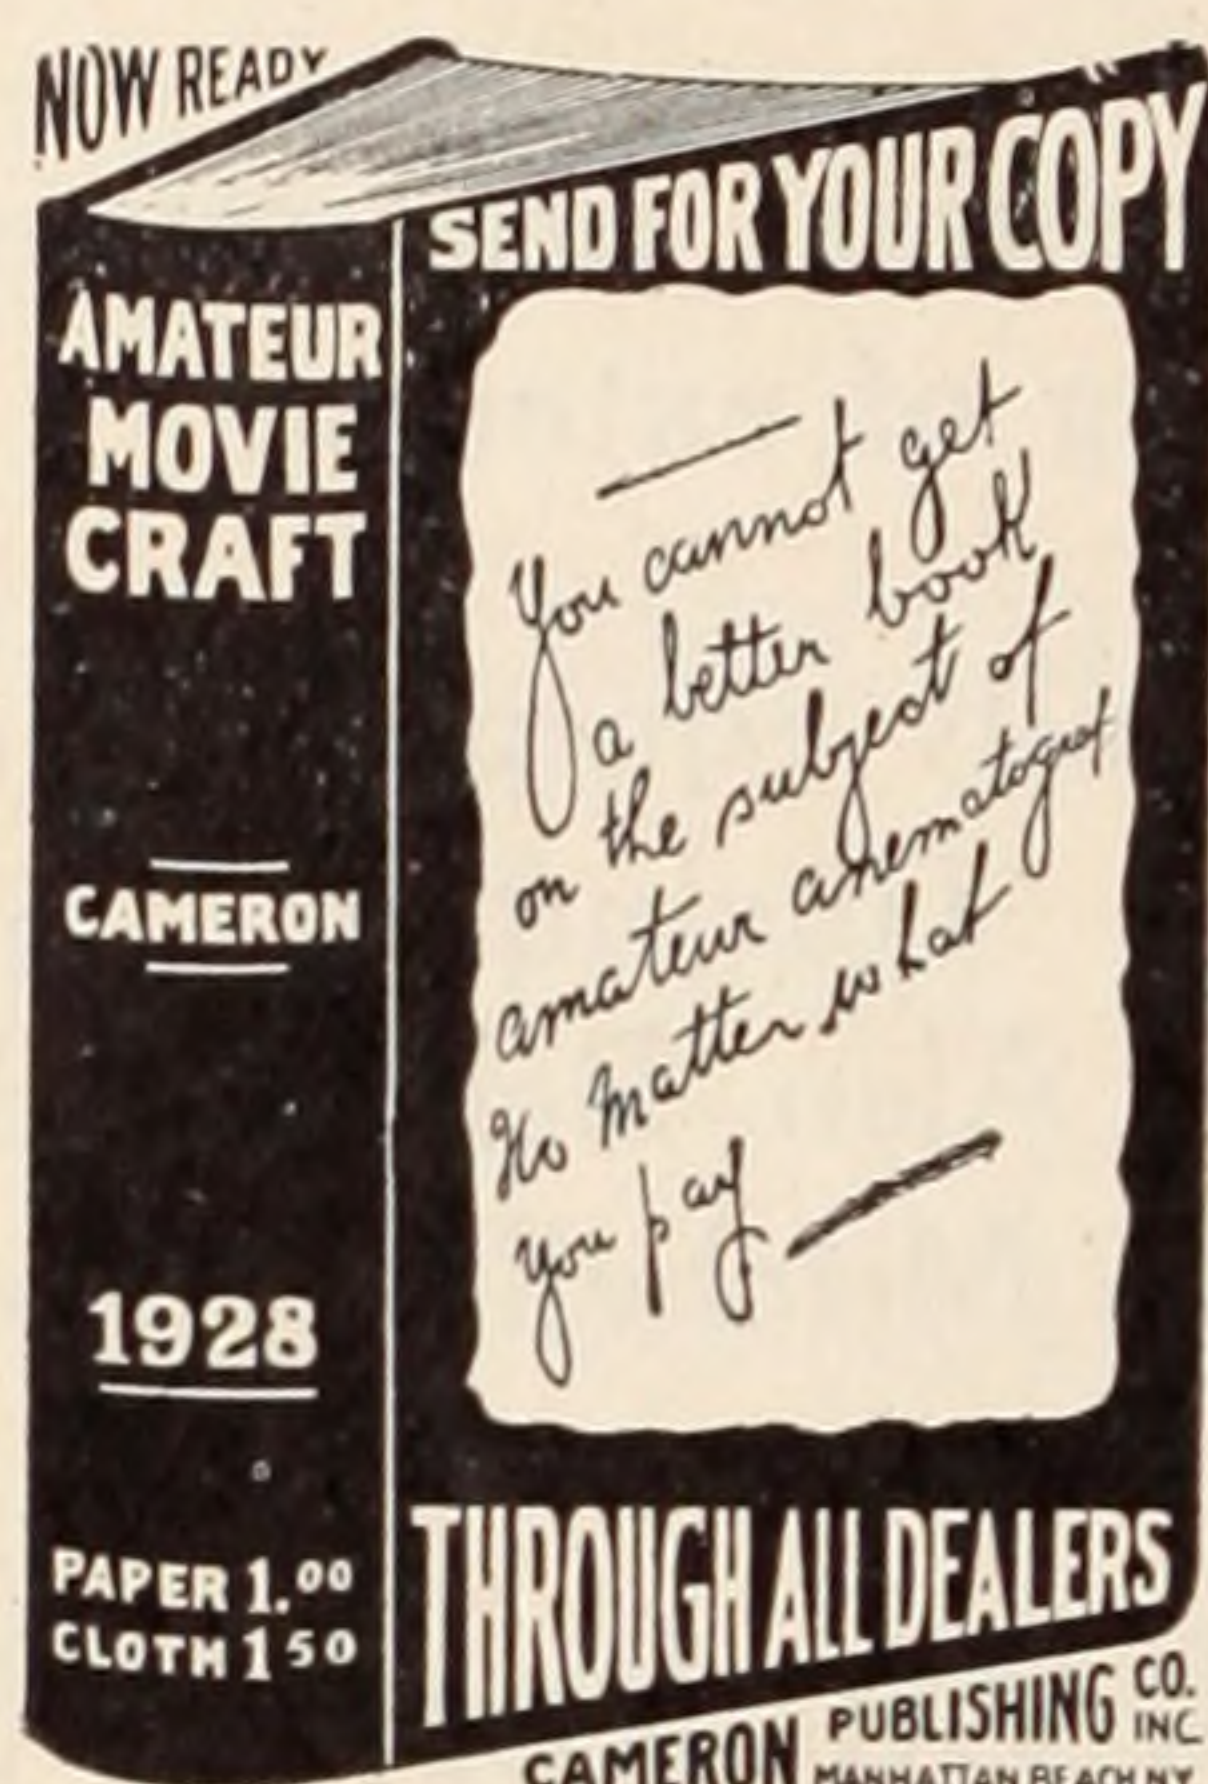 NOW READY
SEND FOR YOUR COPY
AMATEUR
MOVIE
CRAFT
CAMERON
1928
PAPER 1.00
CLOTH 1 50
You cannot get
a better book
on the subject of
amateur cinematograf
No Matter what
you pay
THROUGH ALL DEALERS
CAMERON PUBLISHING CO. INC
MANHATTAN BEACH N.Y.